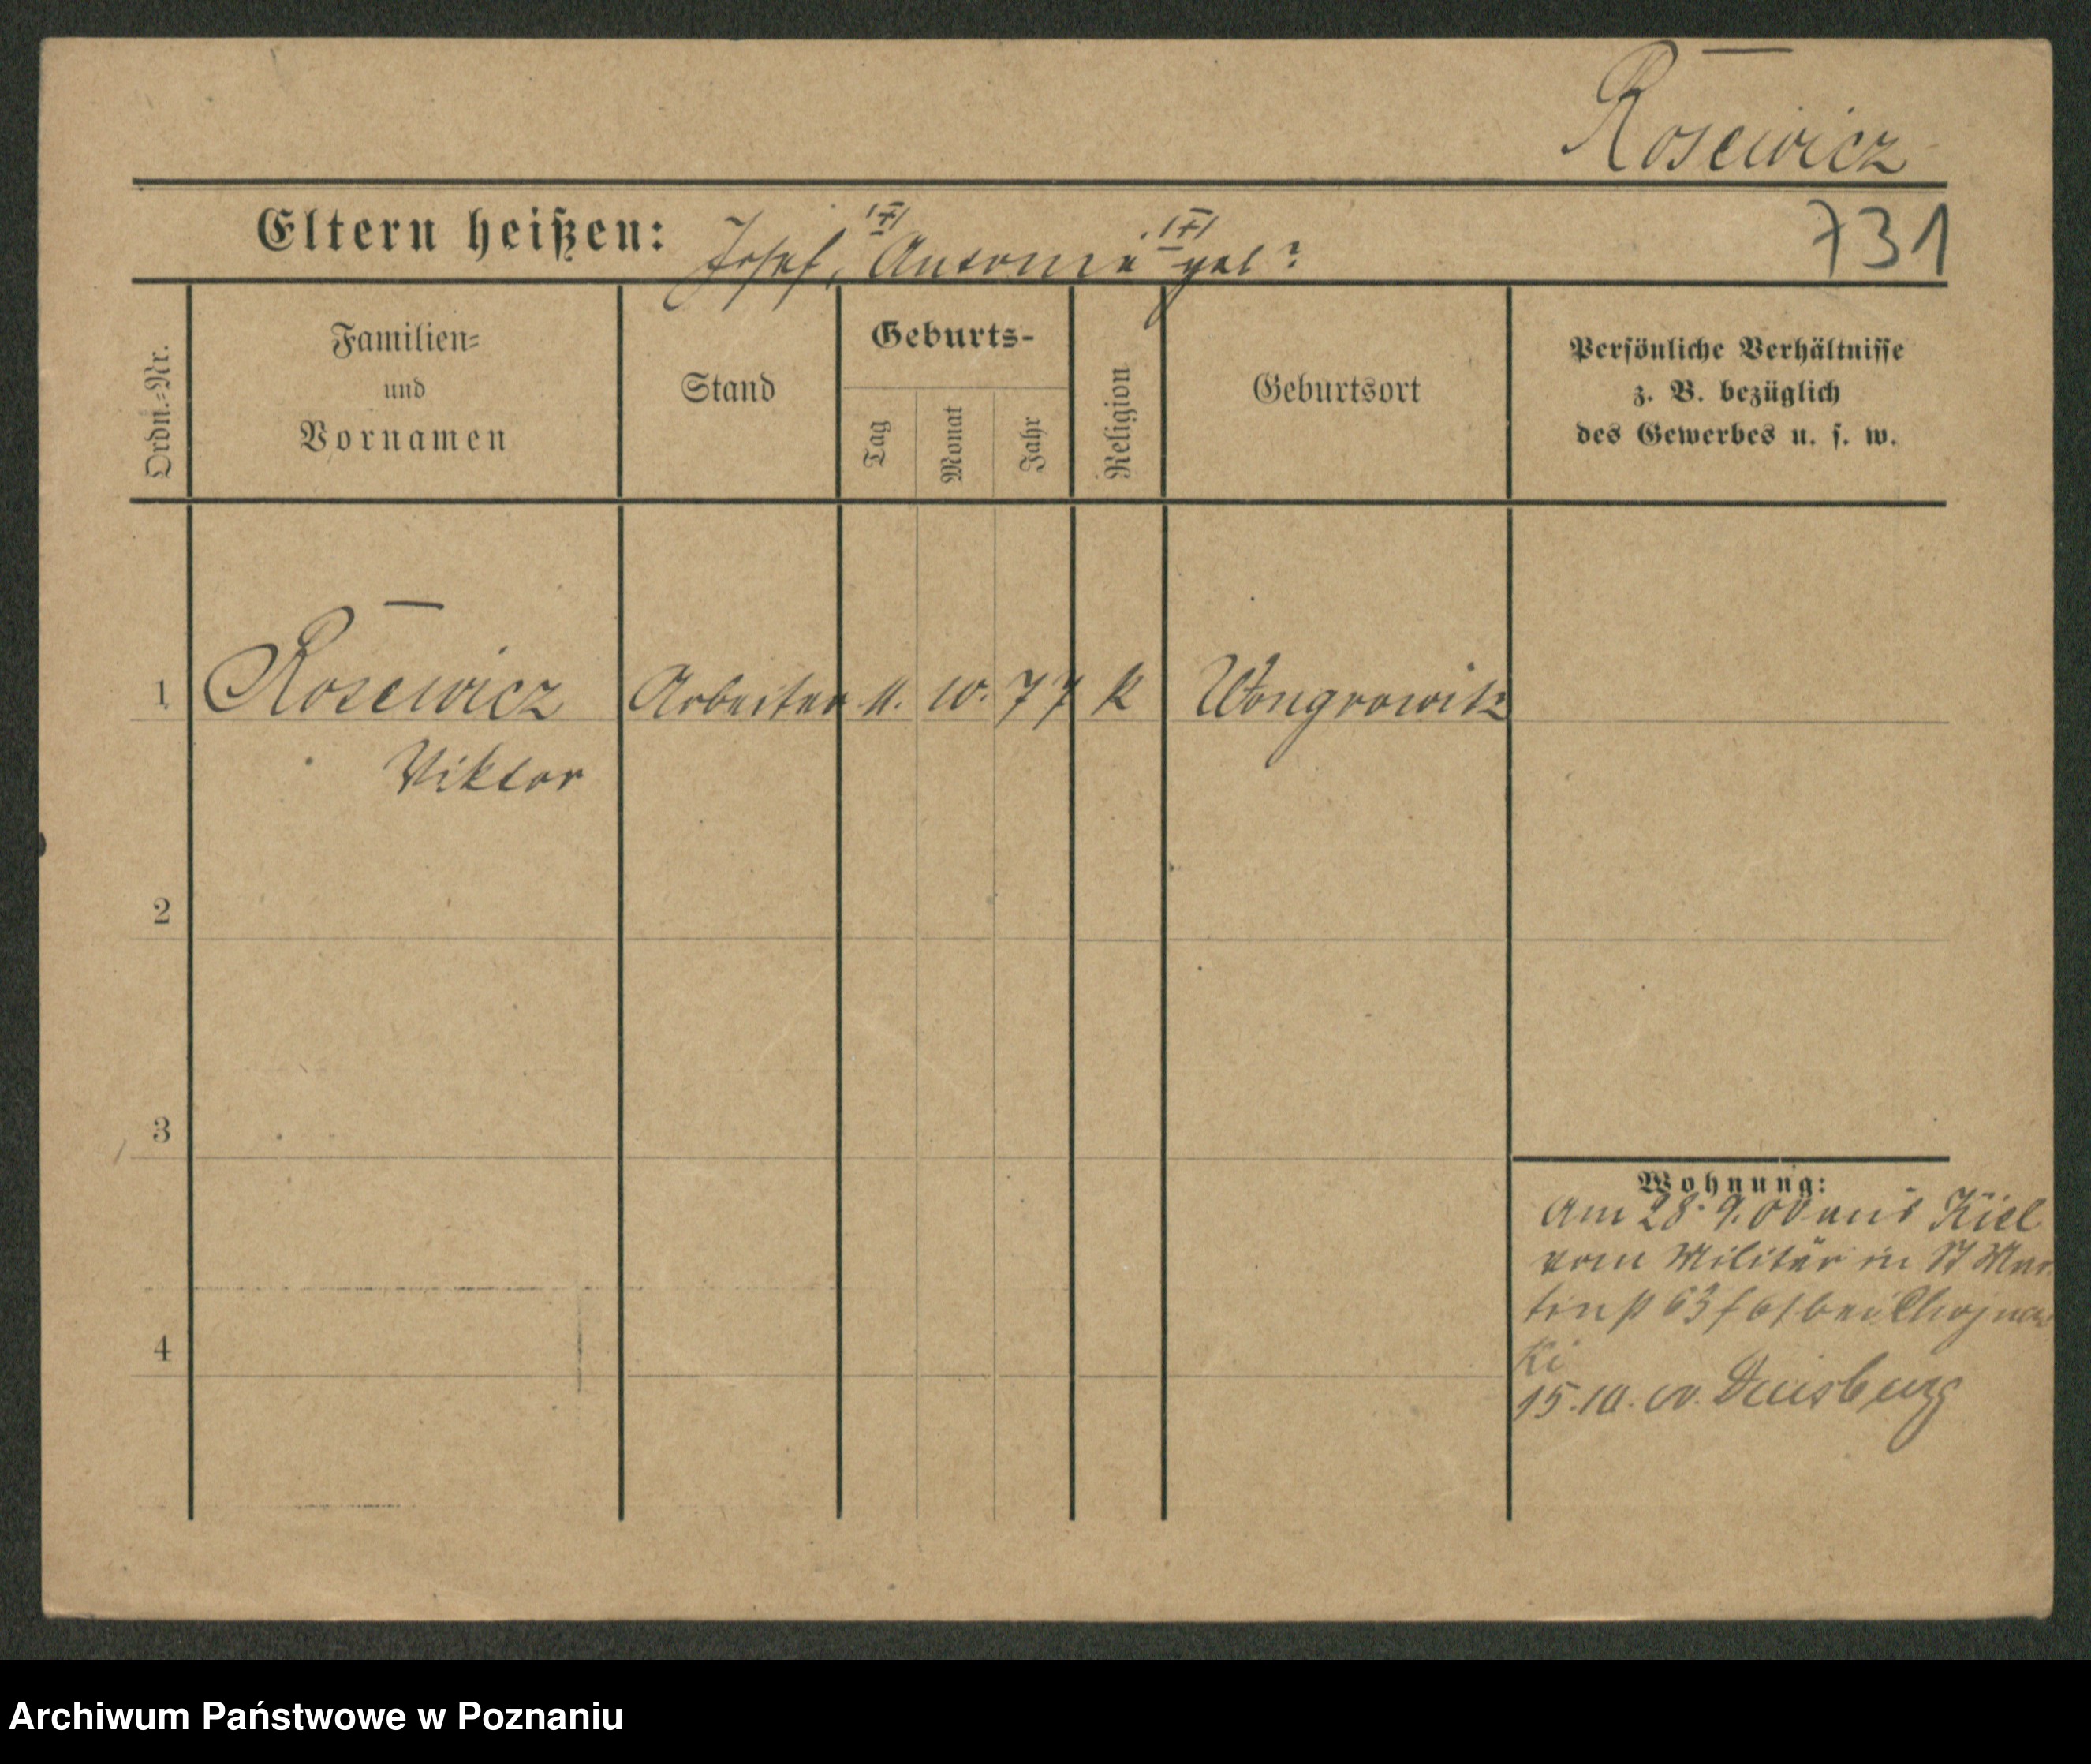 Rosewicz
Eltern heißen: Josef, (+) Antonie (+) geb ?
731
Ordn.=Nr.
Familien=
und
Vornamen
Stand
Geburts-
Tag
Monat
Jahr
Religion
Geburtsort
Persönliche Verhältnisse
z. B. bezüglich
des Gewerbes u. s. w.
1 Rosewicz Arbeiter 11. 10. 77 k Wongrowitz
Viktor
2
3
Wohnung:
Am 28. 9. 00 aus Kiel
vom Militär in St Mar
tinst 63 bei Chojnac
ki
4
15. 10. 00. Duisburg
Archiwum Państwowe w Poznaniu